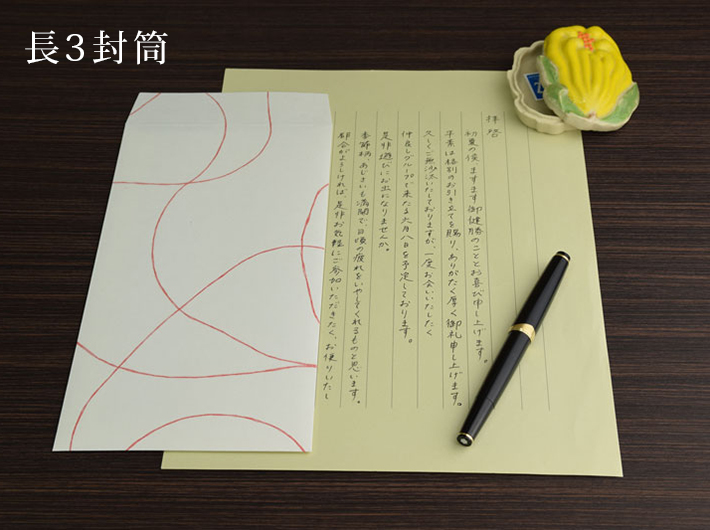 長3封筒
拝啓
初夏の候、ますます御健勝のこととお喜び申し上げます。
平素は格別のお引き立てを賜り、ありがたく厚く御礼申し上げます。
久しくご無沙汰いたしておりますが、一度お会いいたしたく
仲良しグループで来たる六月八日を予定しております。
是非遊びにお出になりませんか。
季節柄、あじさいも満開で、日頃の疲れをいやしてくれるものと思います。
都合がよろしければ、是非お気軽にご参加いただきたく、お便りいたし